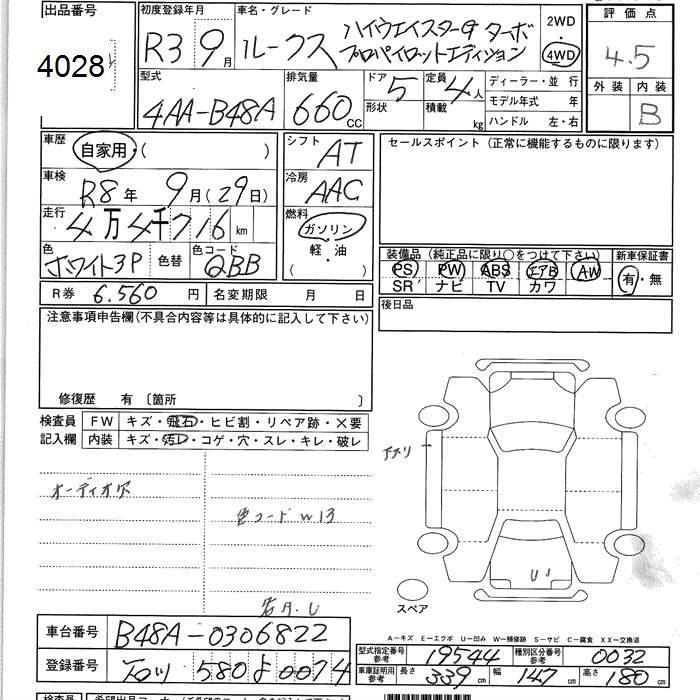 出品番号 初度登録年月 車名・グレード 2WD 評価点
4028 R3 9月 ルークス ハイウェイスターG ターボ
プロパイロットエディション 4WD 4.5
型式 排気量 ドア 5 定員 4人 ディーラー・並行 外装 内装
4AA-B48A 660cc 形状 積載 kg モデル年式 年 B
ハンドル 左・右
車歴 自家用・( ) シフト AT セールスポイント(正常に機能するものに限ります)
車検 R8年 9月(29日) 冷房 AAC
走行 4万4千716km 燃料 ガソリン
軽・油
( )
色 ホワイト3P 色替 色コード QBB 装備品(純正品に限り○をつけて下さい) 新車保証書
PS PW ABS エアB AW 有・無
SR ナビ TV カワ
R券 6.560円 名変期限 月 日 後日品
注意事項申告欄(不具合内容等は具体的に記入して下さい)
修復歴 有 〔箇所 〕
検査員 FW キズ・飛石・ヒビ割・リペア跡・×要
記入欄 内装 キズ・汚レ・コゲ・穴・スレ・キレ・破レ
オーディオ穴
色コード W13
U1
スペア
A−キズ E−エクボ U−凹み W−補修跡 S−サビ C−腐食 XX−交換済
車台番号 B48A-0306822
型式指定番号 参考 19544 種別区分番号 参考 0032
登録番号 石川 580 よ 0074
車庫証明用 参考 長さ 339cm 幅 147cm 高さ 180cm